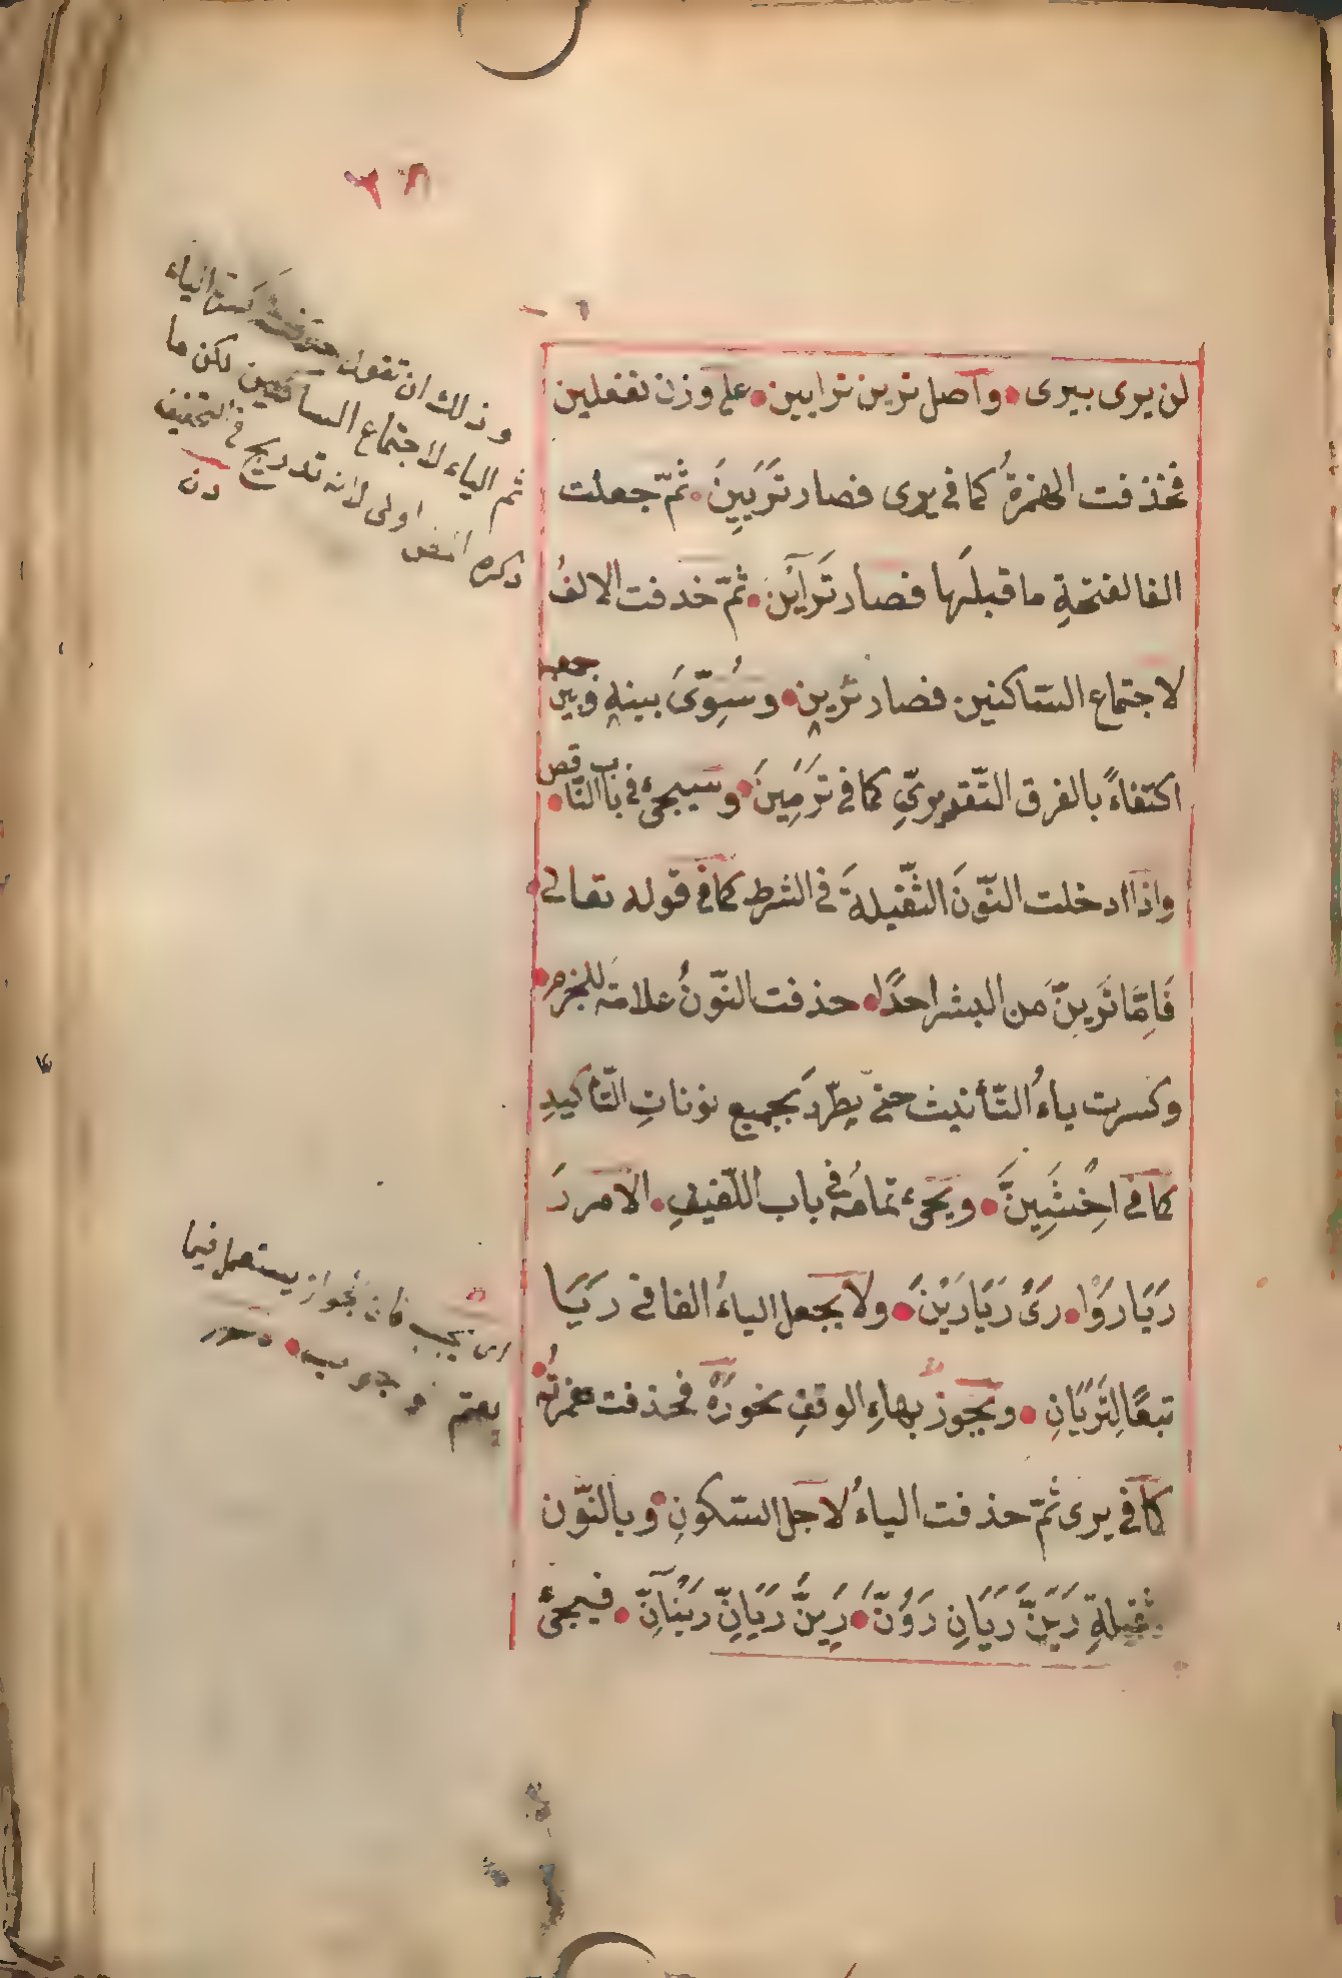 ٣٨
لن يرى بيرى • واصل ترين ترايين • على وزن تفعلين
فحذفت الهمزةُ كما فى يرى فصار تَرَيِينَ • ثمّ جعلت
الفا لفتحةِ ما قبلَها فصار تَرَايْنَ • ثمّ حذفت الالفُ
لاجتماع السّاكنين فصار تَرين • وسُوِّىَ بينه وبين جمعه
اكتفاءً بالفرق التّقديرىِّ كما فى ترمِينَ • وسيجىُٔ فى باب النّاقص •
واذا ادخلت النّونَ الثّقيلةَ فى الشرط كما فى قوله تعالى •
فَاِمَّا تَرَيِنَّ من البشر احدًا • حذفت النّونُ علامةَ للجزم •
وكسرت ياءُ التّأنيث حتّى يطّردَ بجميع نوناتِ التّأكيدِ
كما فى اخْشَيِنَّ • ويجىء تمامُه فى باب اللّفيفِ • الامر رَ
رَيَا رَوْا • رَىْ رَيَا رَيْنَ • ولا يجعل الياءُ الفا فى رَيَا
تبعًا لِتَرَيَانِ • ويجوز بهاءِ الوقفِ نحو رَهْ فحذفت همزتُه •
كما فى يرى ثمّ حذفت الياءُ لاجل السّكونِ • وبالنّون
ثقيلةِ رَيَنَّ رَيَانِ رَوُنَّ • رَيِنَّ رَيَانِّ رَيْنَانِّ • فيجىُٔ
وذلك ان تقول حذفت كسرة الياء
ثم الياء لاجتماع الساكنين لكن ما
ذكره المص اولى لانه تدريج فى التخفيف
اى يجب فان الجواز يستعمل فيما
يعم وجوب •